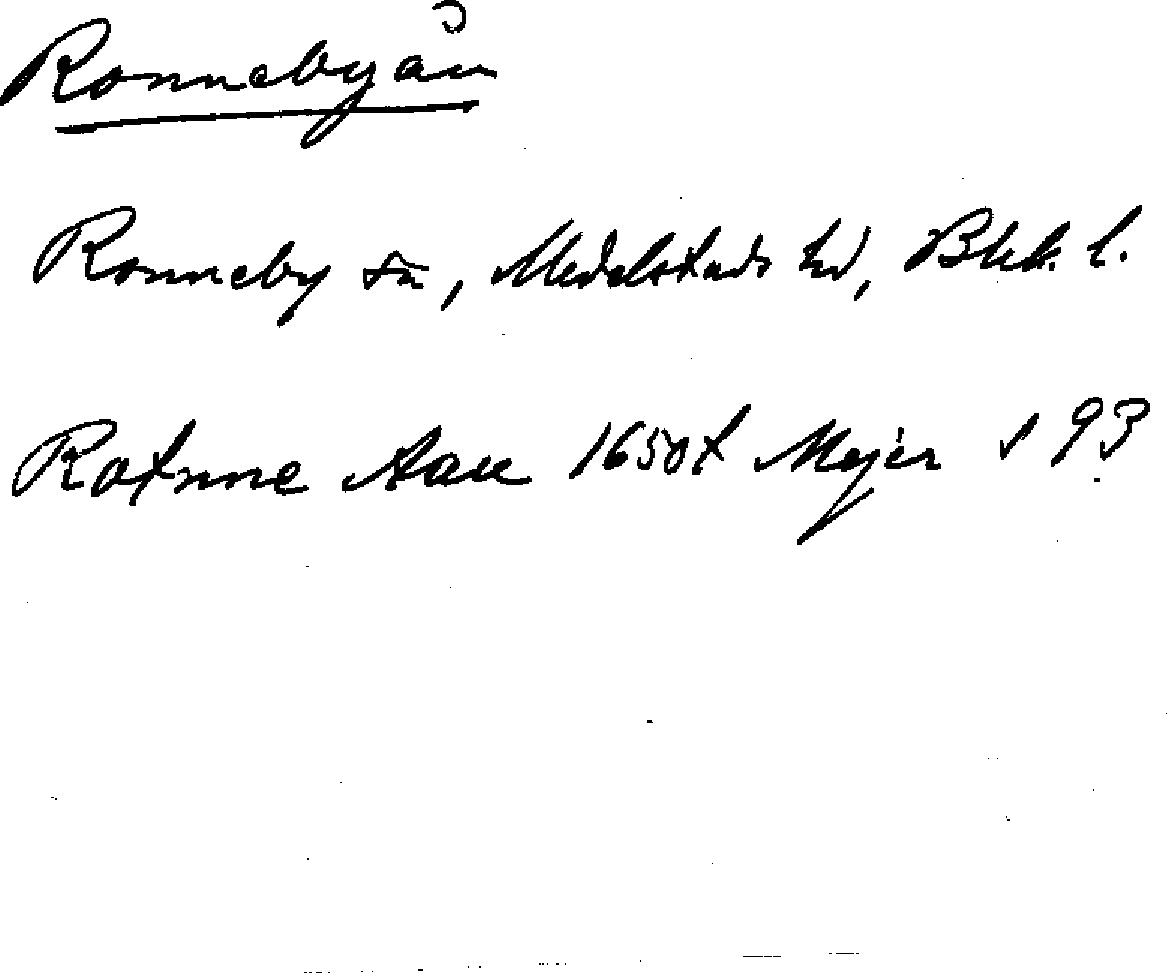 Ronnebyån
Ronneby sn, Medelstads hd, Blek. l.
Rotnne Aau 1650t Mejer s 93